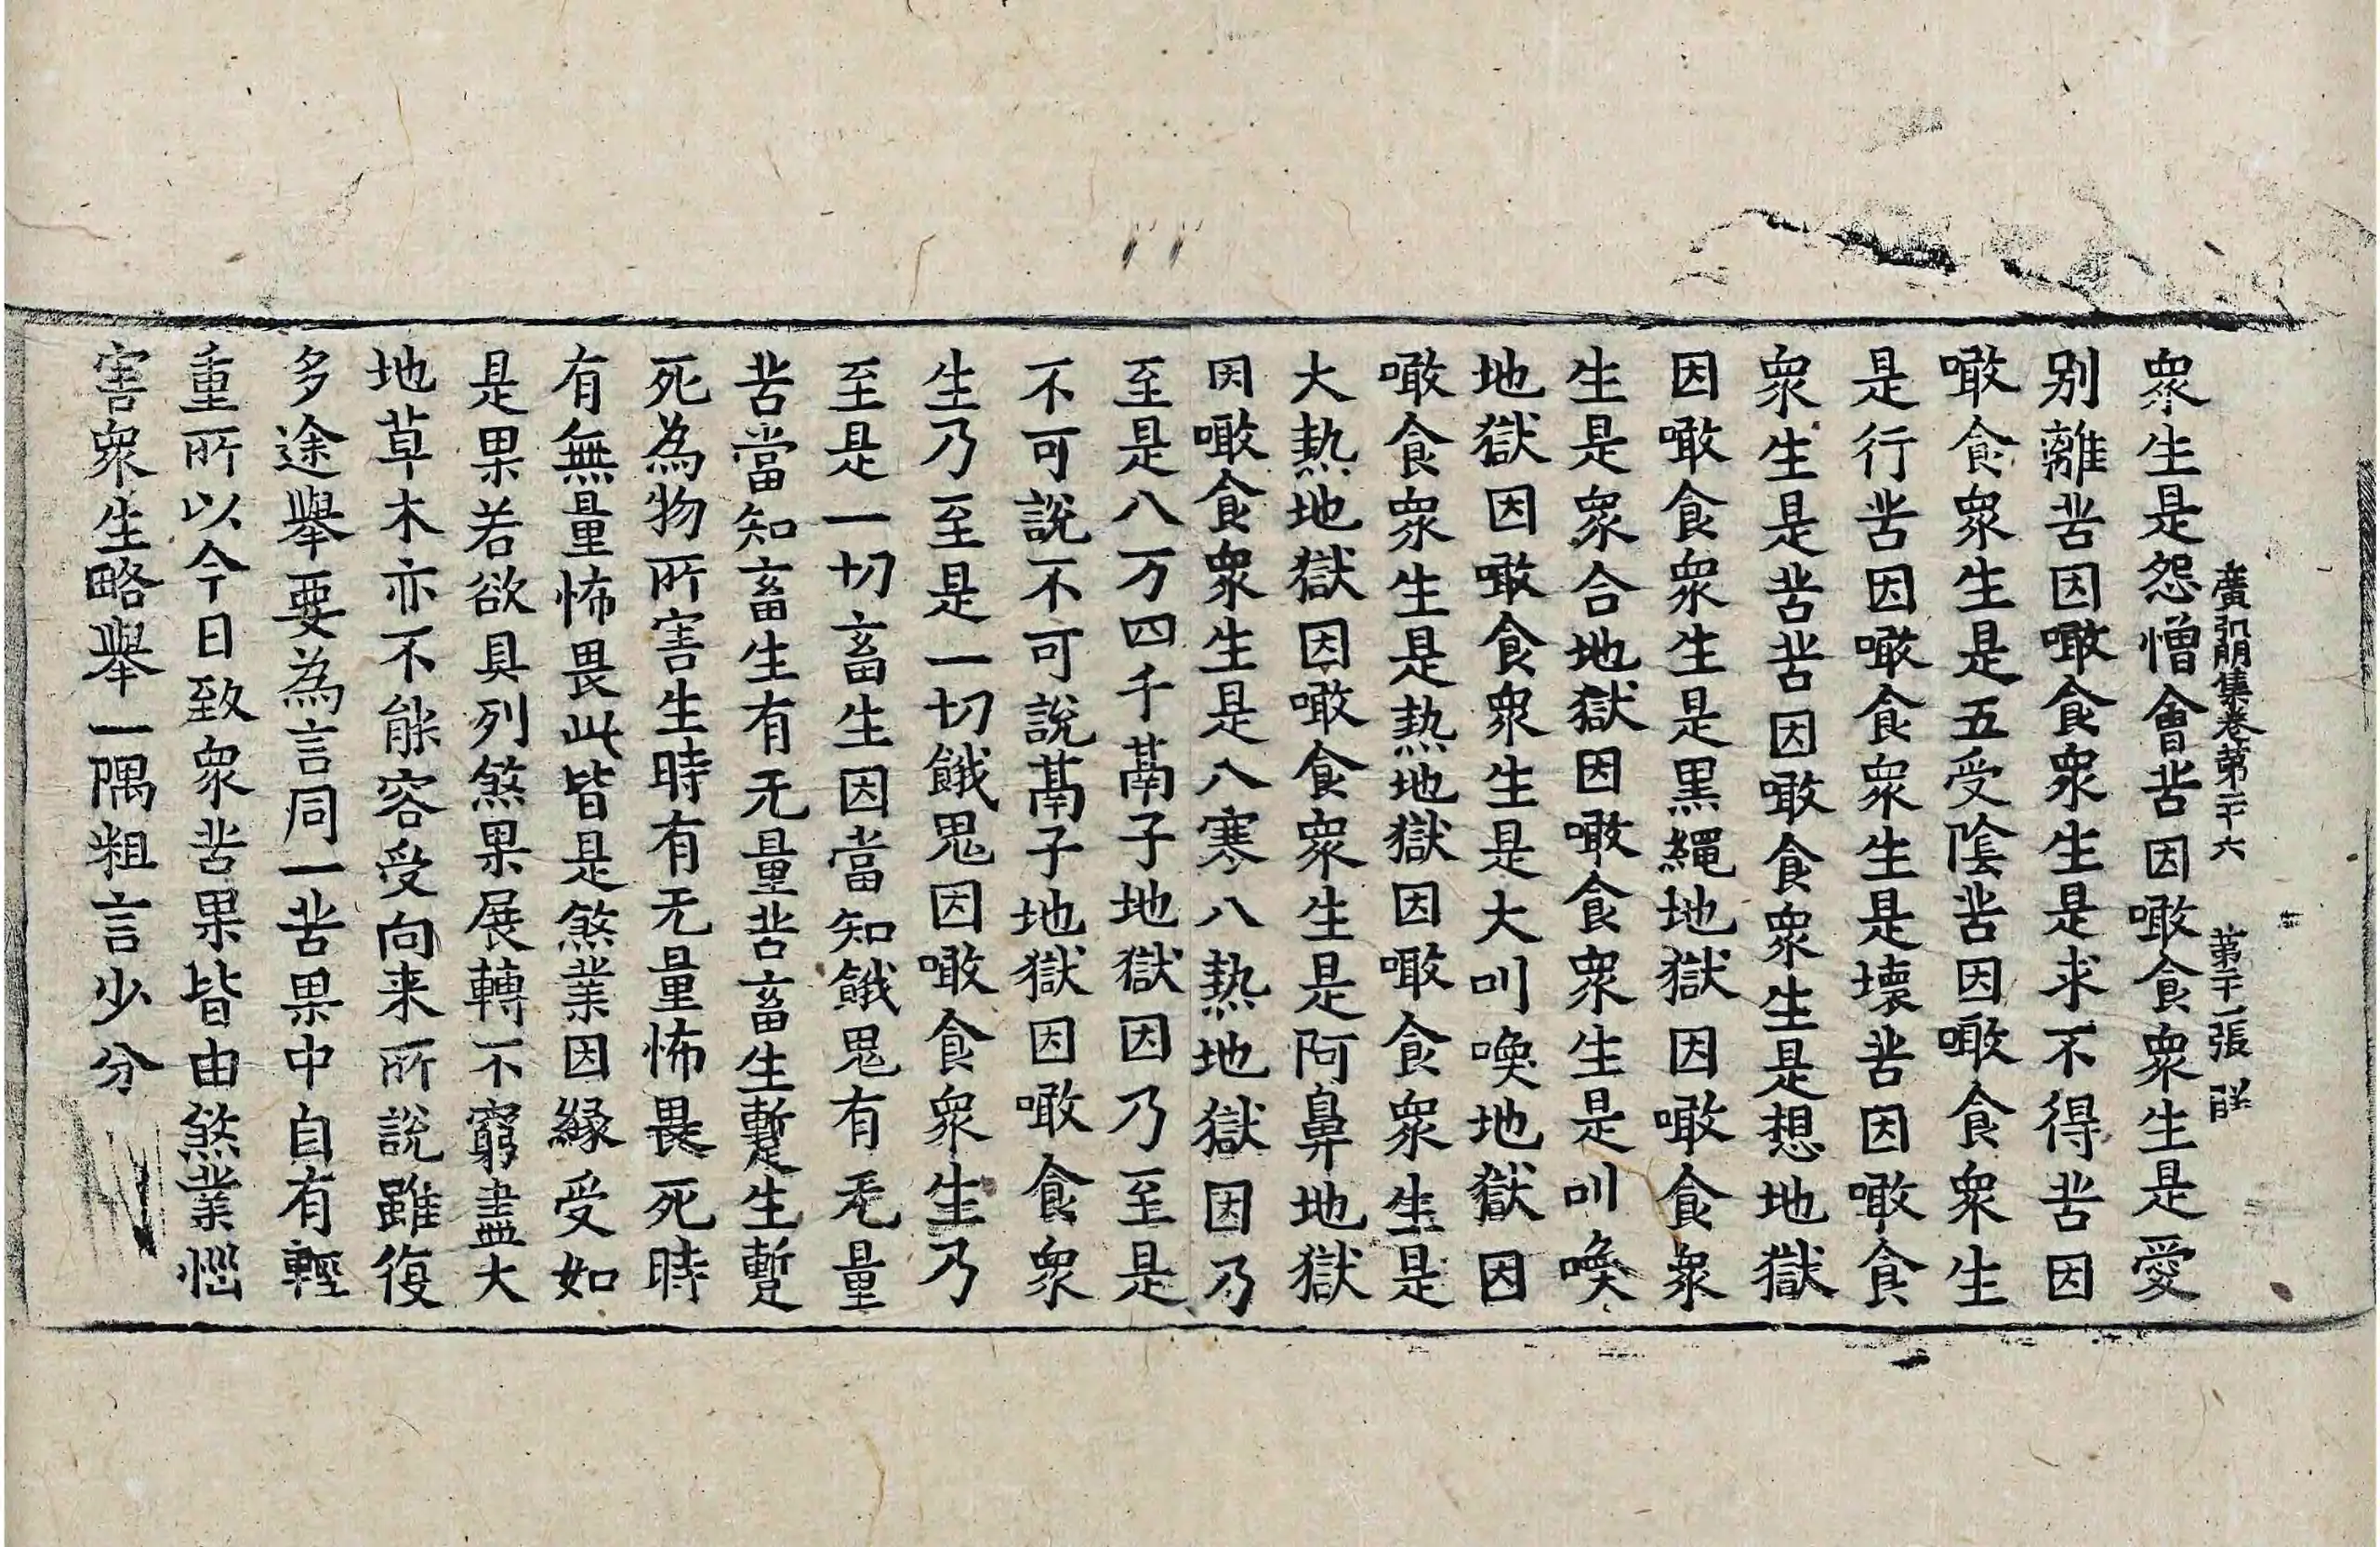 廣弘明集卷第二十六　第二十一張　群
衆生是怨憎會苦因噉食衆生是愛
别離苦因噉食衆生是求不得苦因
噉食衆生是五受陰苦因噉食衆生
是行苦因噉食衆生是壞苦因噉食
衆生是苦苦因噉食衆生是想地獄
因噉食衆生是黒繩地獄因噉食衆
生是衆合地獄因噉食衆生是叫喚
地獄因噉食衆生是大叫喚地獄因
噉食衆生是熱地獄因噉食衆生是
大熱地獄因噉食衆生是阿鼻地獄
因噉食衆生是八寒八熱地獄因乃
至是八万四千鬲子地獄因乃至是
不可說不可說鬲子地獄因噉食衆
生乃至是一切餓鬼因噉食衆生乃
至是一切畜生因當知餓鬼有无量
苦當知畜生有无量苦畜生蹔生蹔
死為物所害生時有无量怖畏死時
有無量怖畏此皆是煞業因緣受如
是果若欲具列煞果展轉不窮盡大
地草木亦不能容受向来所說雖復
多途舉要為言同一苦果中自有輕
重所以今日致衆苦果皆由煞業惱
害衆生略舉一隅粗言少分